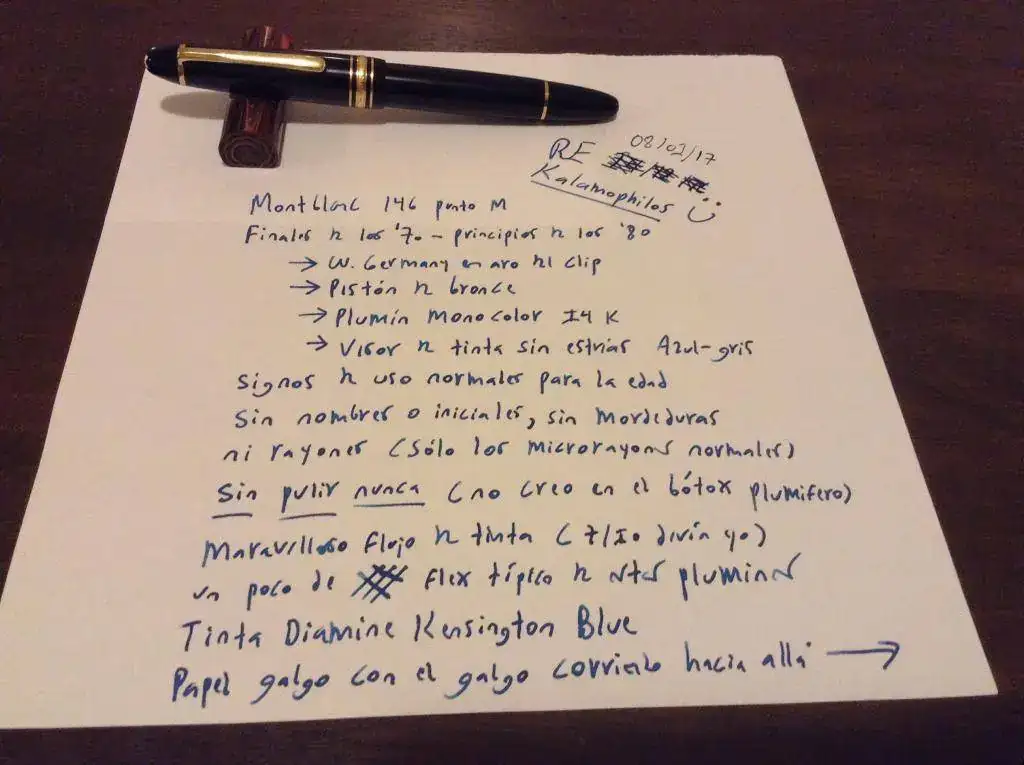 RE 08/01/17
Kalamophilos
Montblanc 146 punto M
Finales de los '70 - principios de los '80
→ W. Germany en aro del clip
→ Pistón de bronce
→ Plumín monocolor 14 K
→ Visor de tinta sin estrías Azul-gris
Signos de uso normales para la edad
Sin nombres o iniciales, sin mordeduras
ni rayones (sólo los microrayones normales)
Sin pulir nunca (no creo en el bótox plumífero)
Maravilloso flujo de tinta (7/10 diría yo)
un poco de flex típico de estos plumines
Tinta Diamine Kensington Blue
Papel galgo con el galgo corriendo hacia allá →